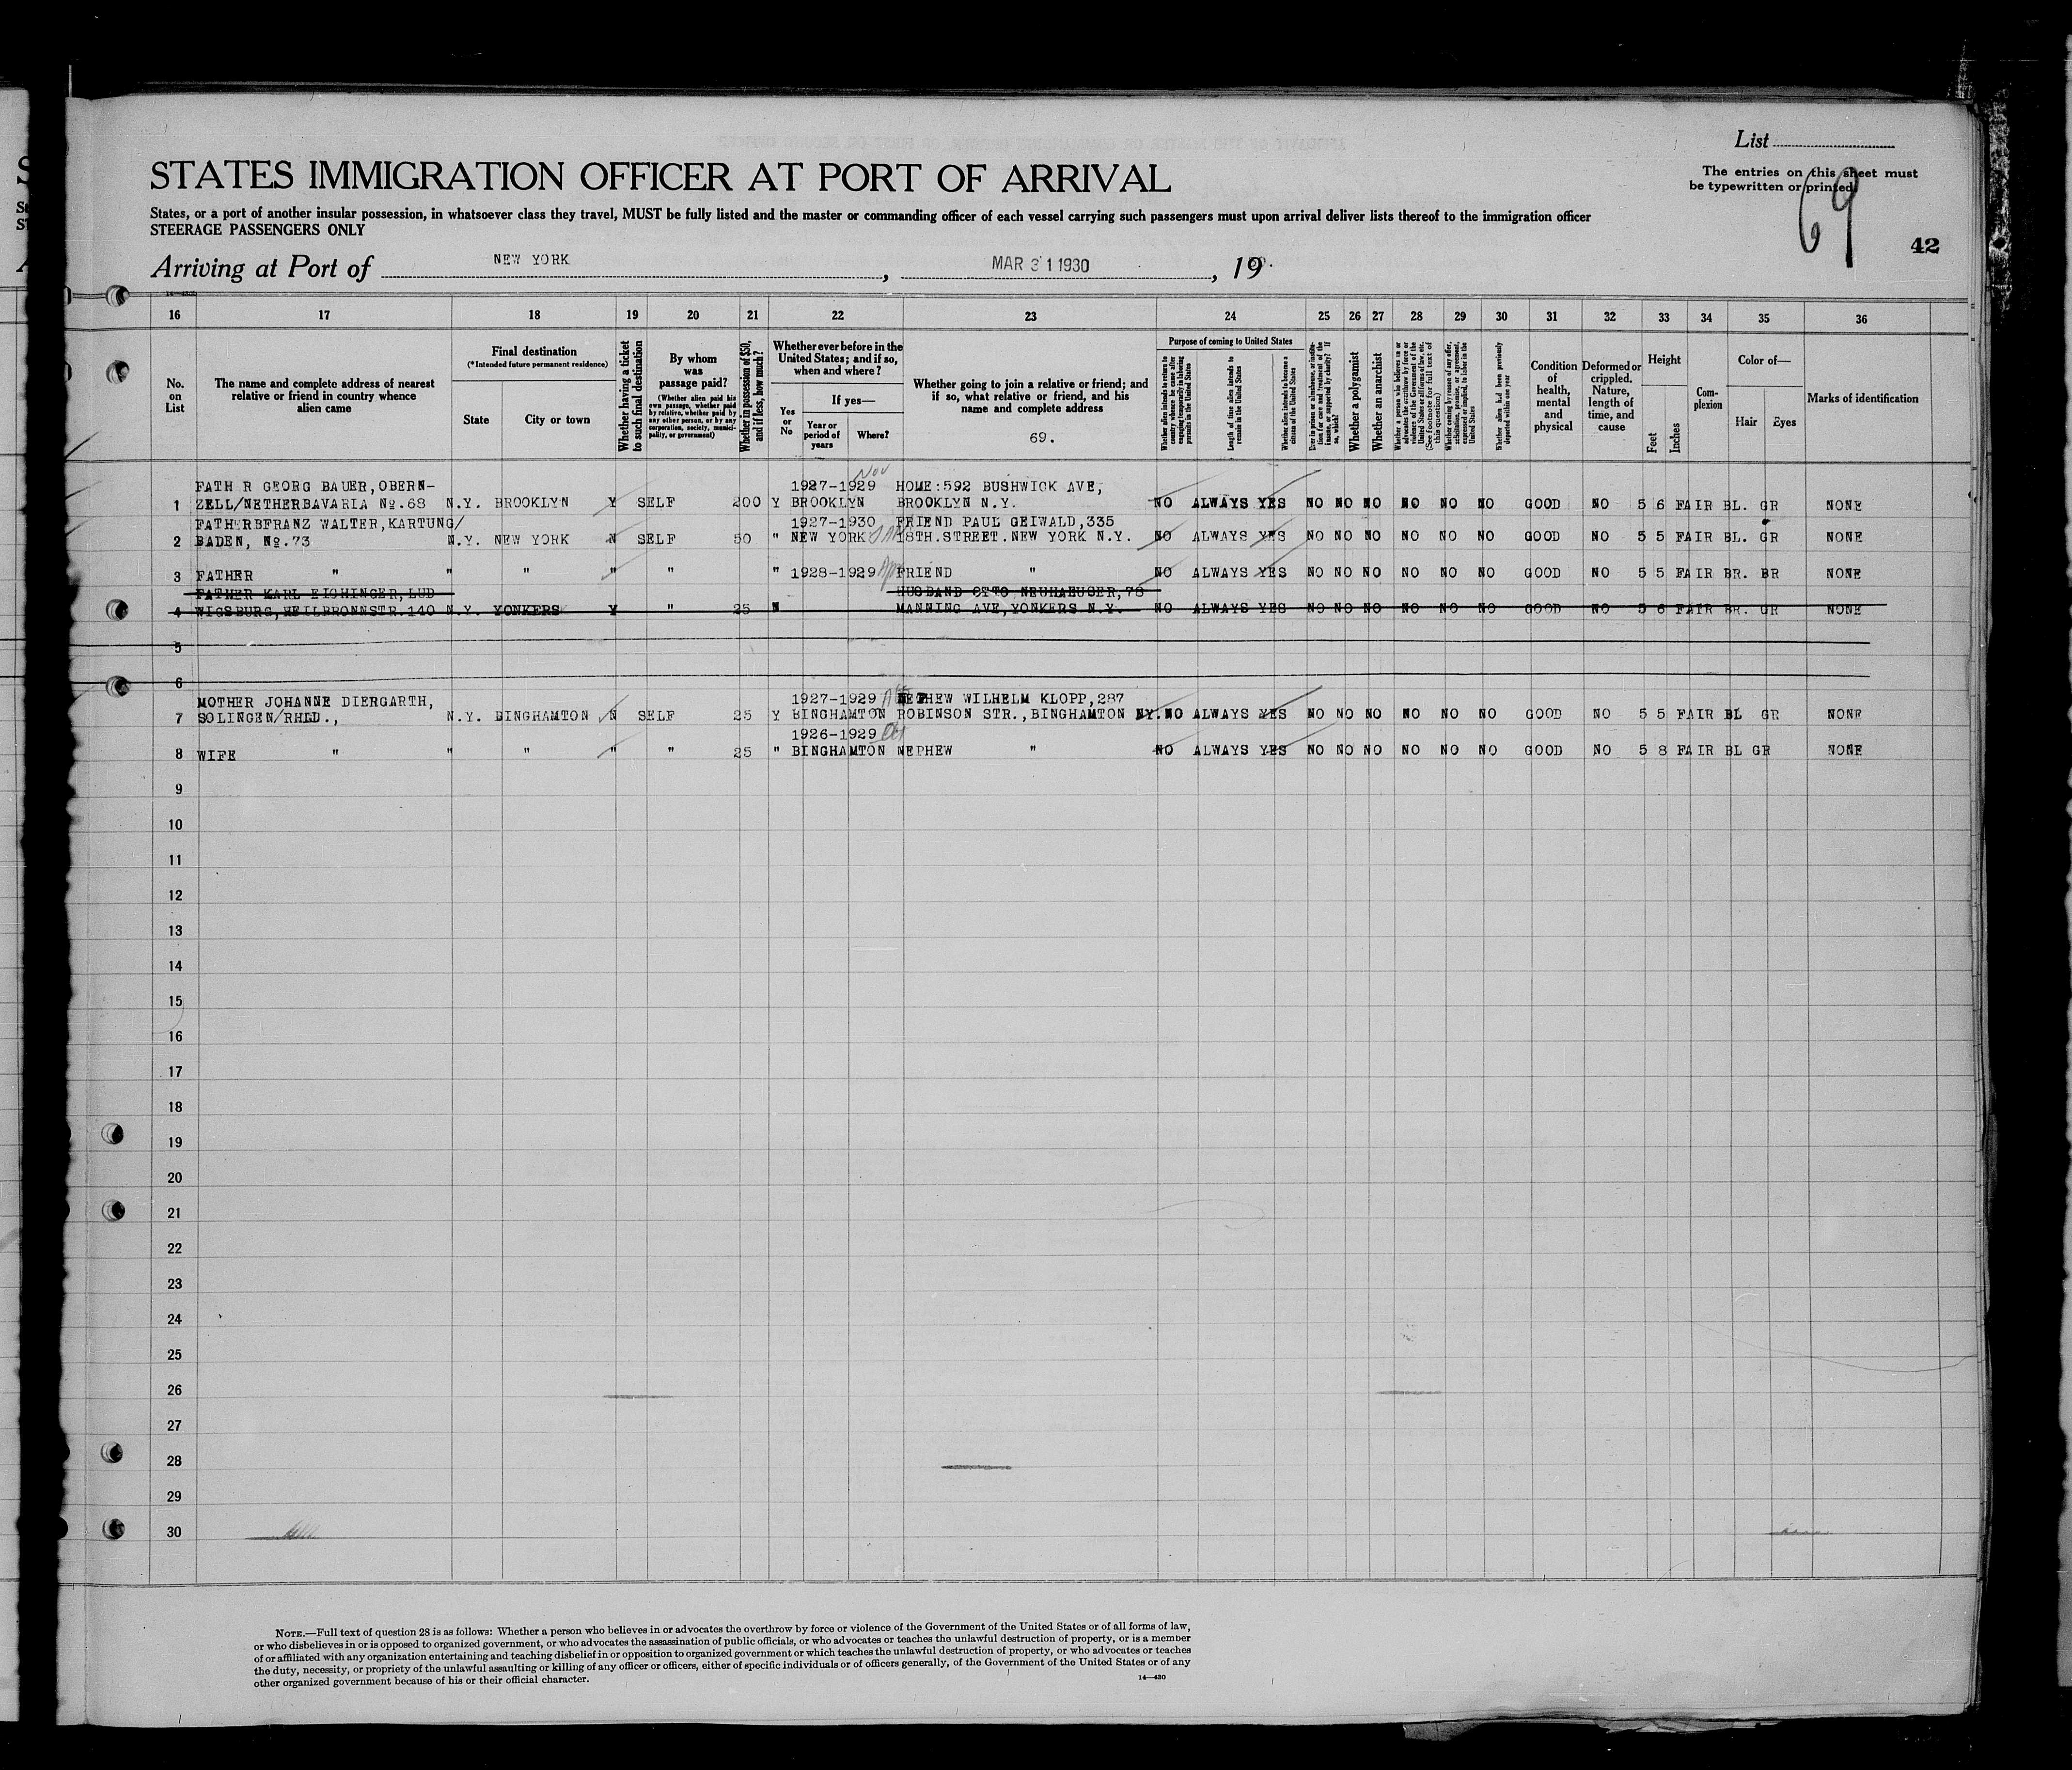 List
The entries on this sheet must
be typewritten or printed
69
42
STATES IMMIGRATION OFFICER AT PORT OF ARRIVAL
States, or a port of another insular possession, in whatsoever class they travel, MUST be fully listed and the master or commanding officer of each vessel carrying such passengers must upon arrival deliver lists thereof to the immigration officer
STEERAGE PASSENGERS ONLY
Arriving at Port of NEW YORK, MAR 31 1930, 19
16 17 18 19 20 21 22 23 24 25 26 27 28 29 30 31 32 33 34 35 36
No. on List
The name and complete address of nearest relative or friend in country whence alien came
Final destination
(*Intended future permanent residence)
State
City or town
Whether having a ticket to such final destination
By whom was passage paid?
(Whether alien paid his own passage, whether paid by relative, whether paid by any other person, or by any corporation, society, municipality, or government)
Whether in possession of $50, and if less, how much?
Whether ever before in the United States; and if so, when and where?
Yes or No
If yes—
Year or period of years
Where?
Whether going to join a relative or friend; and if so, what relative or friend, and his name and complete address
69.
Purpose of coming to United States
Whether alien intends to return to country whence he came after engaging temporarily in laboring pursuits in the United States
Length of time alien intends to remain in the United States
Whether alien intends to become a citizen of the United States
Whether a polygamist
Whether an anarchist
Condition of health, mental and physical
Deformed or crippled. Nature, length of time, and cause
Height
Feet
Inches
Complexion
Color of—
Hair
Eyes
Marks of identification
Nov
FATH R GEORG BAUER, OBERN- 1927-1929 HOME:592 BUSHWICK AVE,
1 ZELL/NETHERBAVARIA №.68 N.Y. BROOKLYN Y SELF 200 Y BROOKLYN BROOKLYN N.Y. NO ALWAYS YES NO NO NO NO NO NO GOOD NO 5 6 FAIR BL. GR NONE
FATHERBFRANZ WALTER, KARTUNG/ 1927-1930 FRIEND PAUL GEIWALD, 335
2 BADEN, №.73 N.Y. NEW YORK N SELF 50 " NEW YORK 18TH.STREET.NEW YORK N.Y. NO ALWAYS YES NO NO NO NO NO NO GOOD NO 5 5 FAIR BL. GR NONE
3 FATHER " " " " " " 1928-1929 FRIEND " NO ALWAYS YES NO NO NO NO NO NO GOOD NO 5 5 FAIR BR. BR NONE
FATHER KARL EICHINGER, LUD HUSBAND OTTO NEUHAEUSER, 78
4 WIGSBURG, HEILBRONNSTR.140 N.Y. YONKERS Y " 25 N MANNING AVE, YONKERS N.Y. NO ALWAYS YES NO NO NO NO NO NO GOOD NO 5 6 FAIR BR. GR NONE
5
6
MOTHER JOHANNE DIERGARTH, 1927-1929 NEPHEW WILHELM KLOPP, 287
7 SOLINGEN/RHLD., N.Y. BINGHAMTON N SELF 25 Y BINGHAMTON ROBINSON STR., BINGHAMTON NY. NO ALWAYS YES NO NO NO NO NO NO GOOD NO 5 5 FAIR BL GR NONE
1926-1929 Oct
8 WIFE " " " " " 25 " BINGHAMTON NEPHEW " NO ALWAYS YES NO NO NO NO NO NO GOOD NO 5 8 FAIR BL GR NONE
9
10
11
12
13
14
15
16
17
18
19
20
21
22
23
24
25
26
27
28
29
30
NOTE.—Full text of question 28 is as follows: Whether a person who believes in or advocates the overthrow by force or violence of the Government of the United States or of all forms of law,
or who disbelieves in or is opposed to organized government, or who advocates the assassination of public officials, or who advocates or teaches the unlawful destruction of property, or is a member
of or affiliated with any organization entertaining and teaching disbelief in or opposition to organized government or which teaches the unlawful destruction of property, or who advocates or teaches
the duty, necessity, or propriety of the unlawful assaulting or killing of any officer or officers, either of specific individuals or of officers generally, of the Government of the United States or of any
other organized government because of his or their official character.
14—430